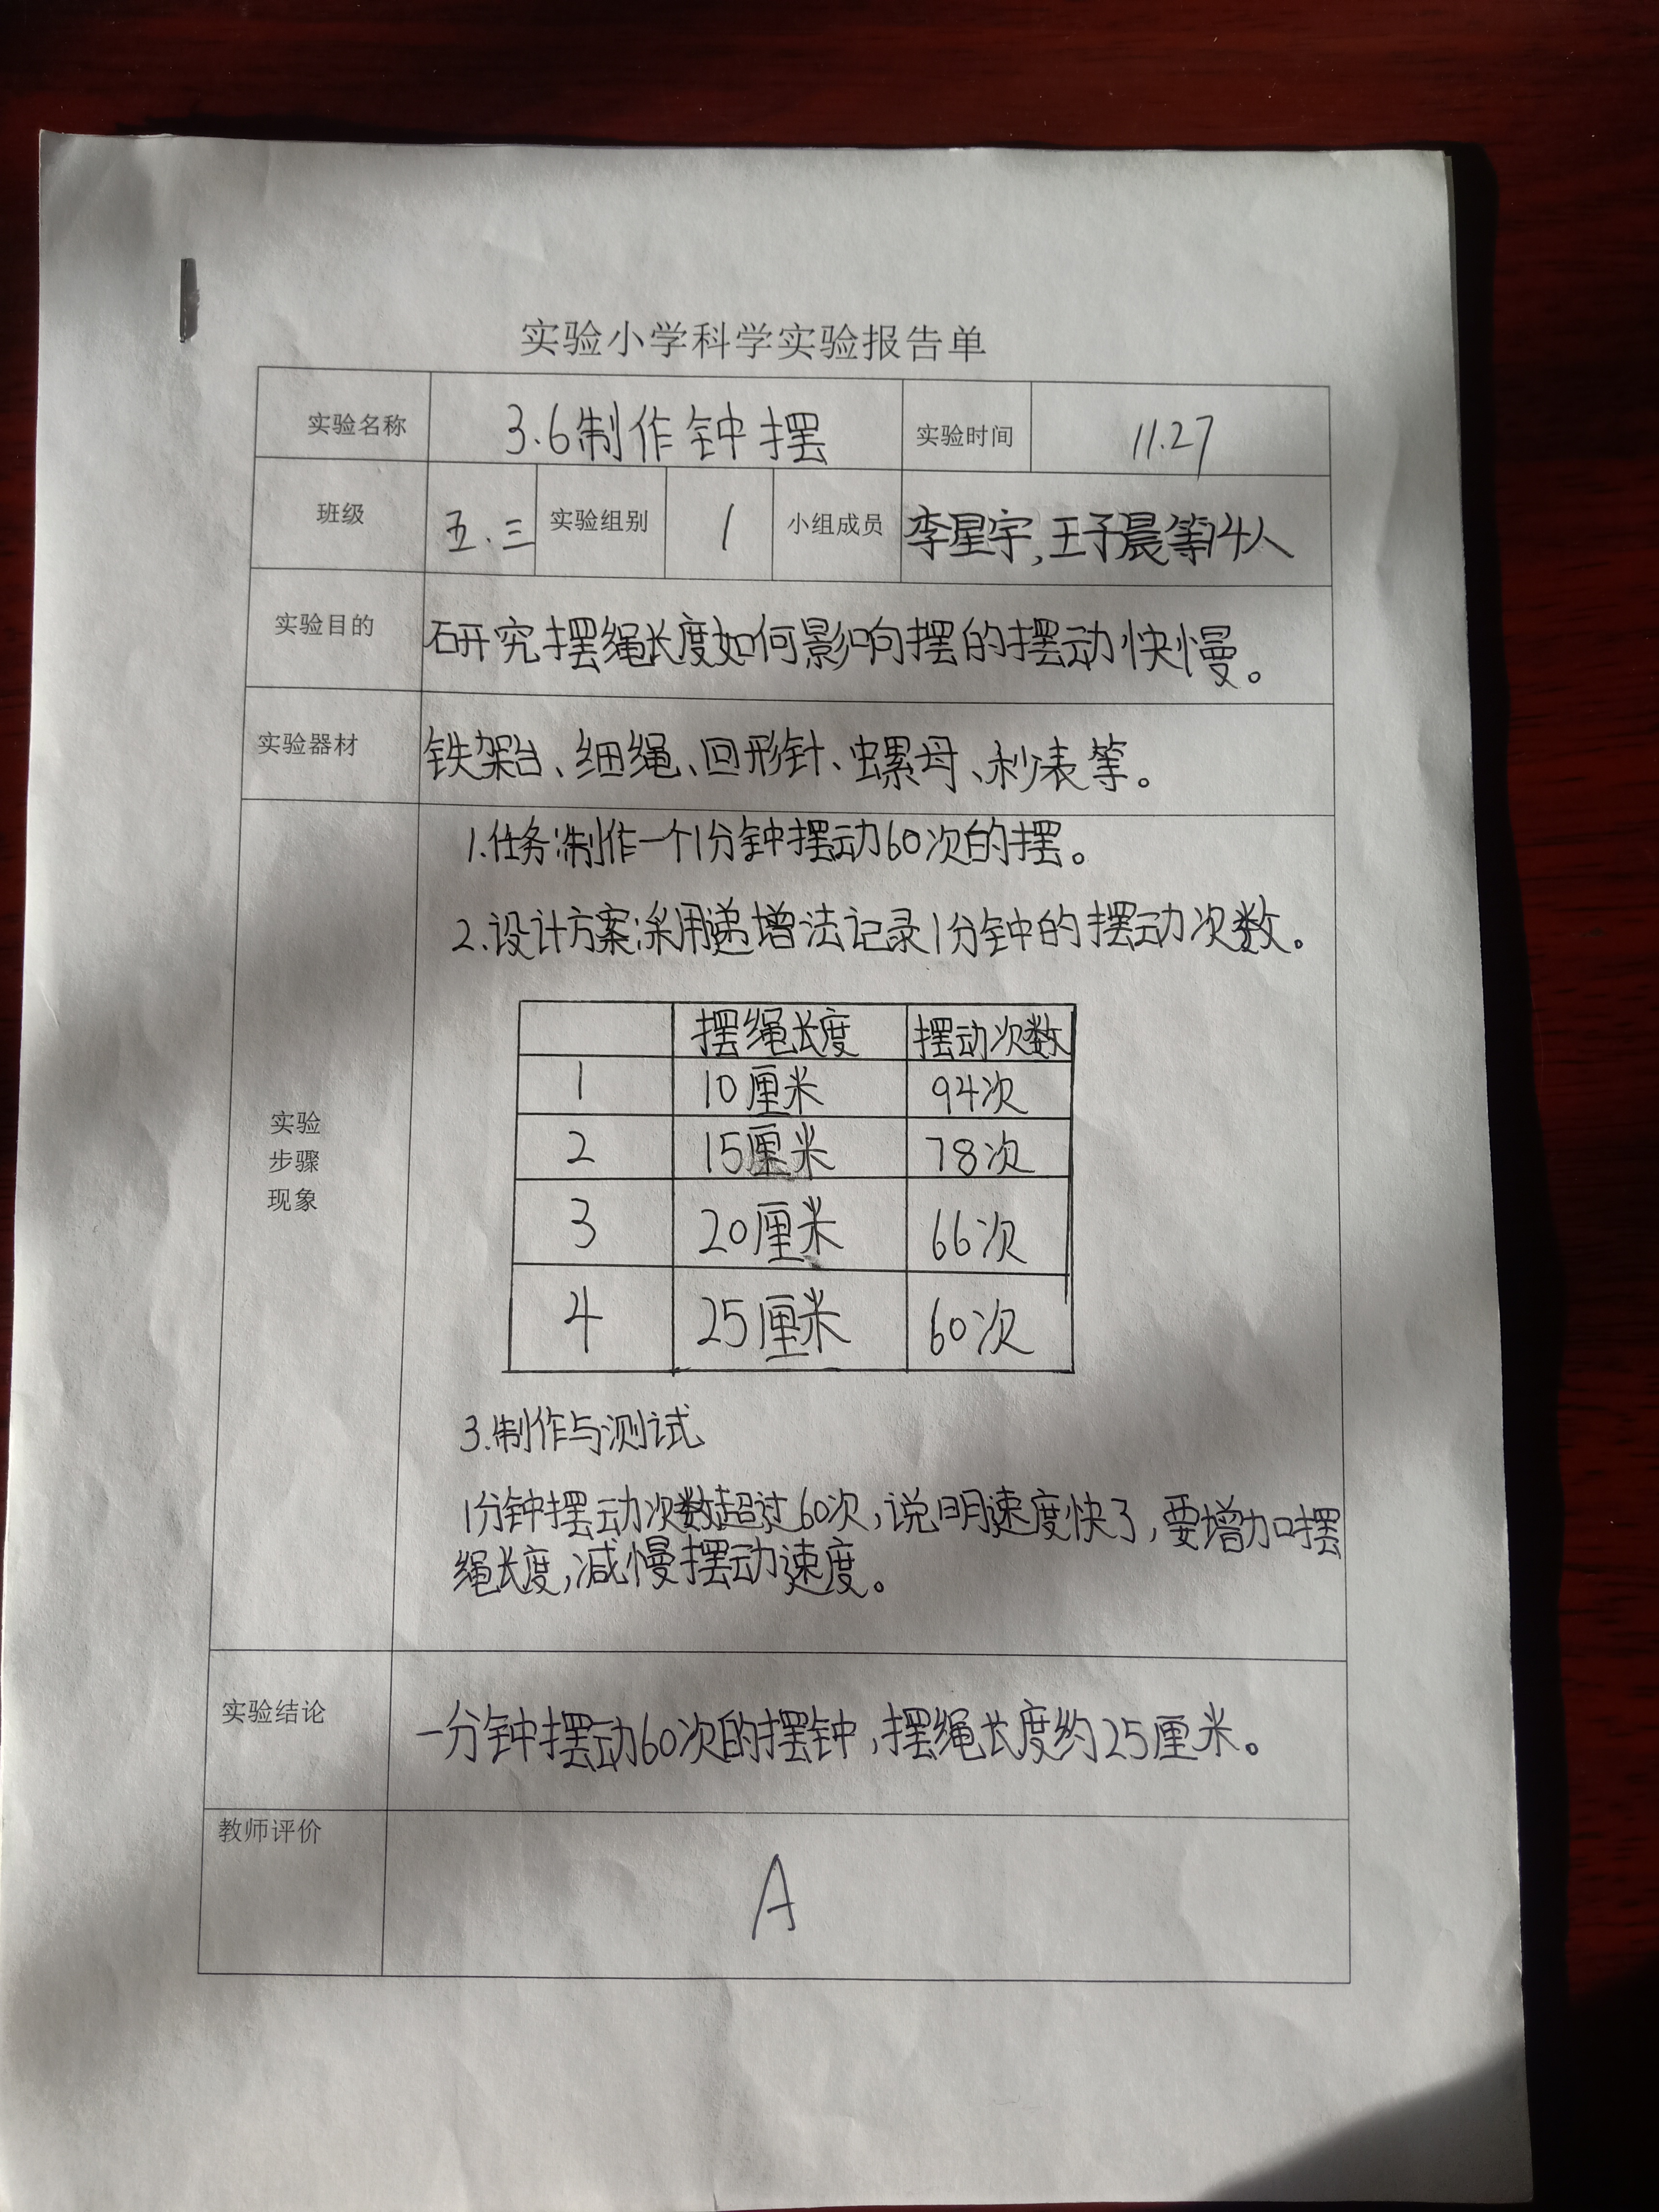 实验小学科学实验报告单
实验名称 3.6制作钟摆 实验时间 11.27
班级 五.三 实验组别 1 小组成员 李星宇,王予晨等4人
实验目的 研究摆绳长度如何影响摆的摆动快慢。
实验器材 铁架台、细绳、回形针、螺母、秒表等。
1.任务:制作一个1分钟摆动60次的摆。
2.设计方案:采用递增法记录1分钟的摆动次数。
摆绳长度 摆动次数
1 10厘米 94次
2 15厘米 78次
3 20厘米 66次
4 25厘米 60次
实验
步骤
现象
3.制作与测试
1分钟摆动次数超过60次,说明速度快了,要增加摆
绳长度,减慢摆动速度。
实验结论 一分钟摆动60次的摆钟,摆绳长度约25厘米。
教师评价
A